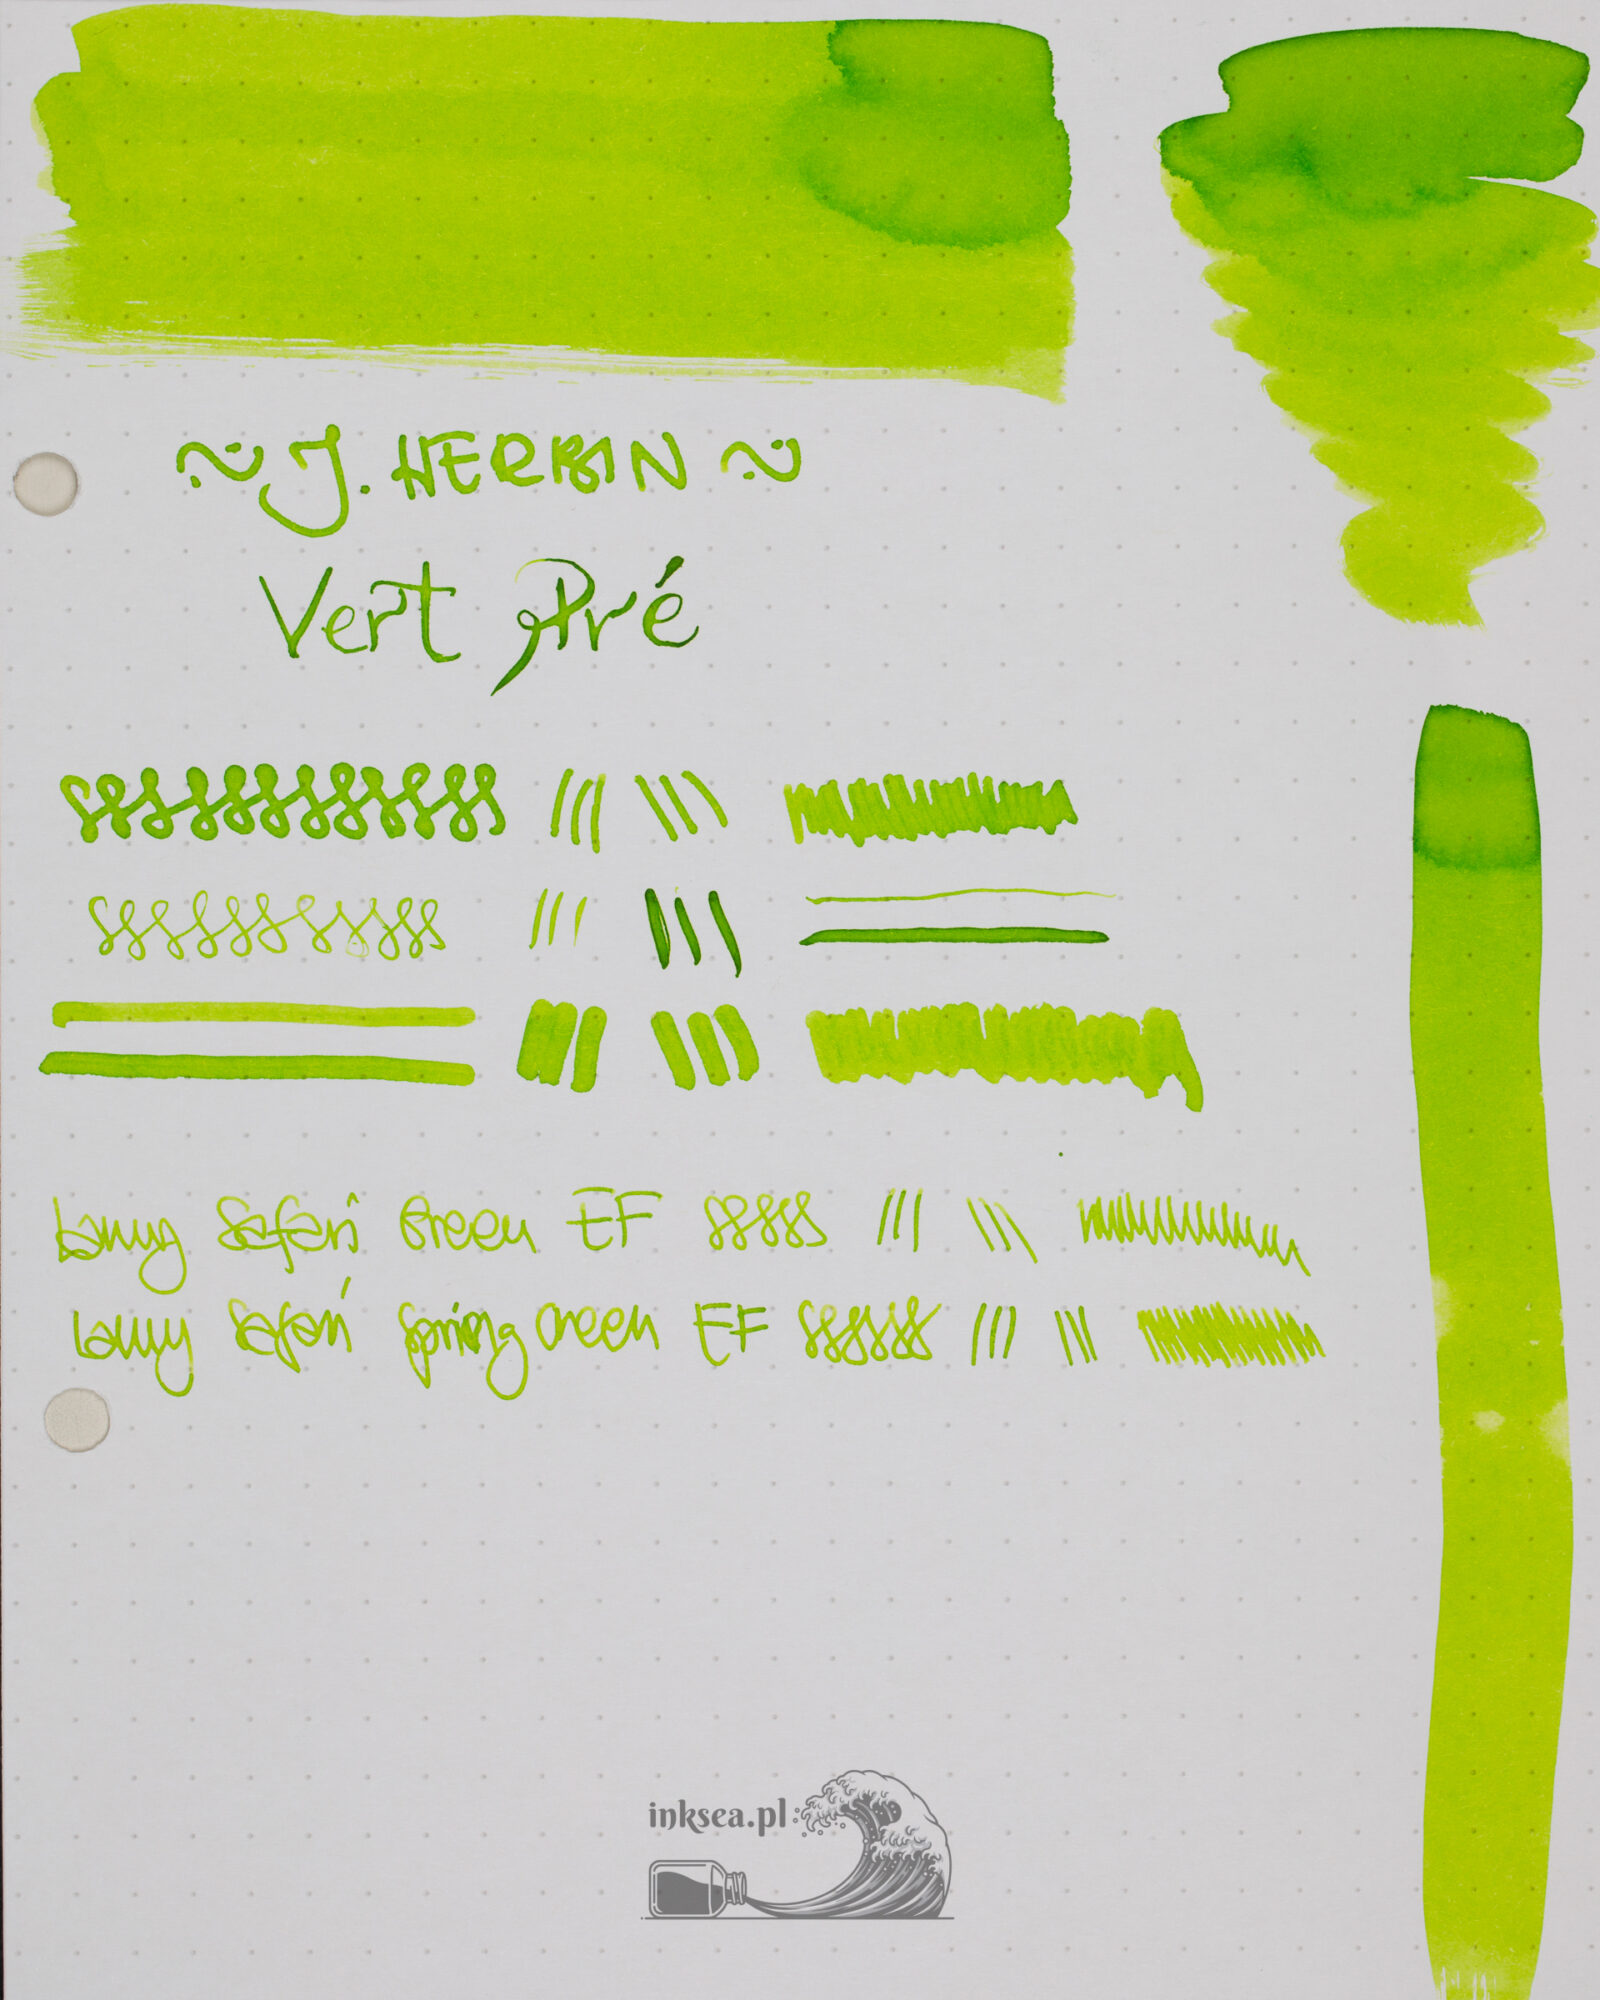 ~ J. HERBIN ~
Vert Pré
Lamy Safari Green EF
Lamy Safari Spring Green EF
inksea.pl